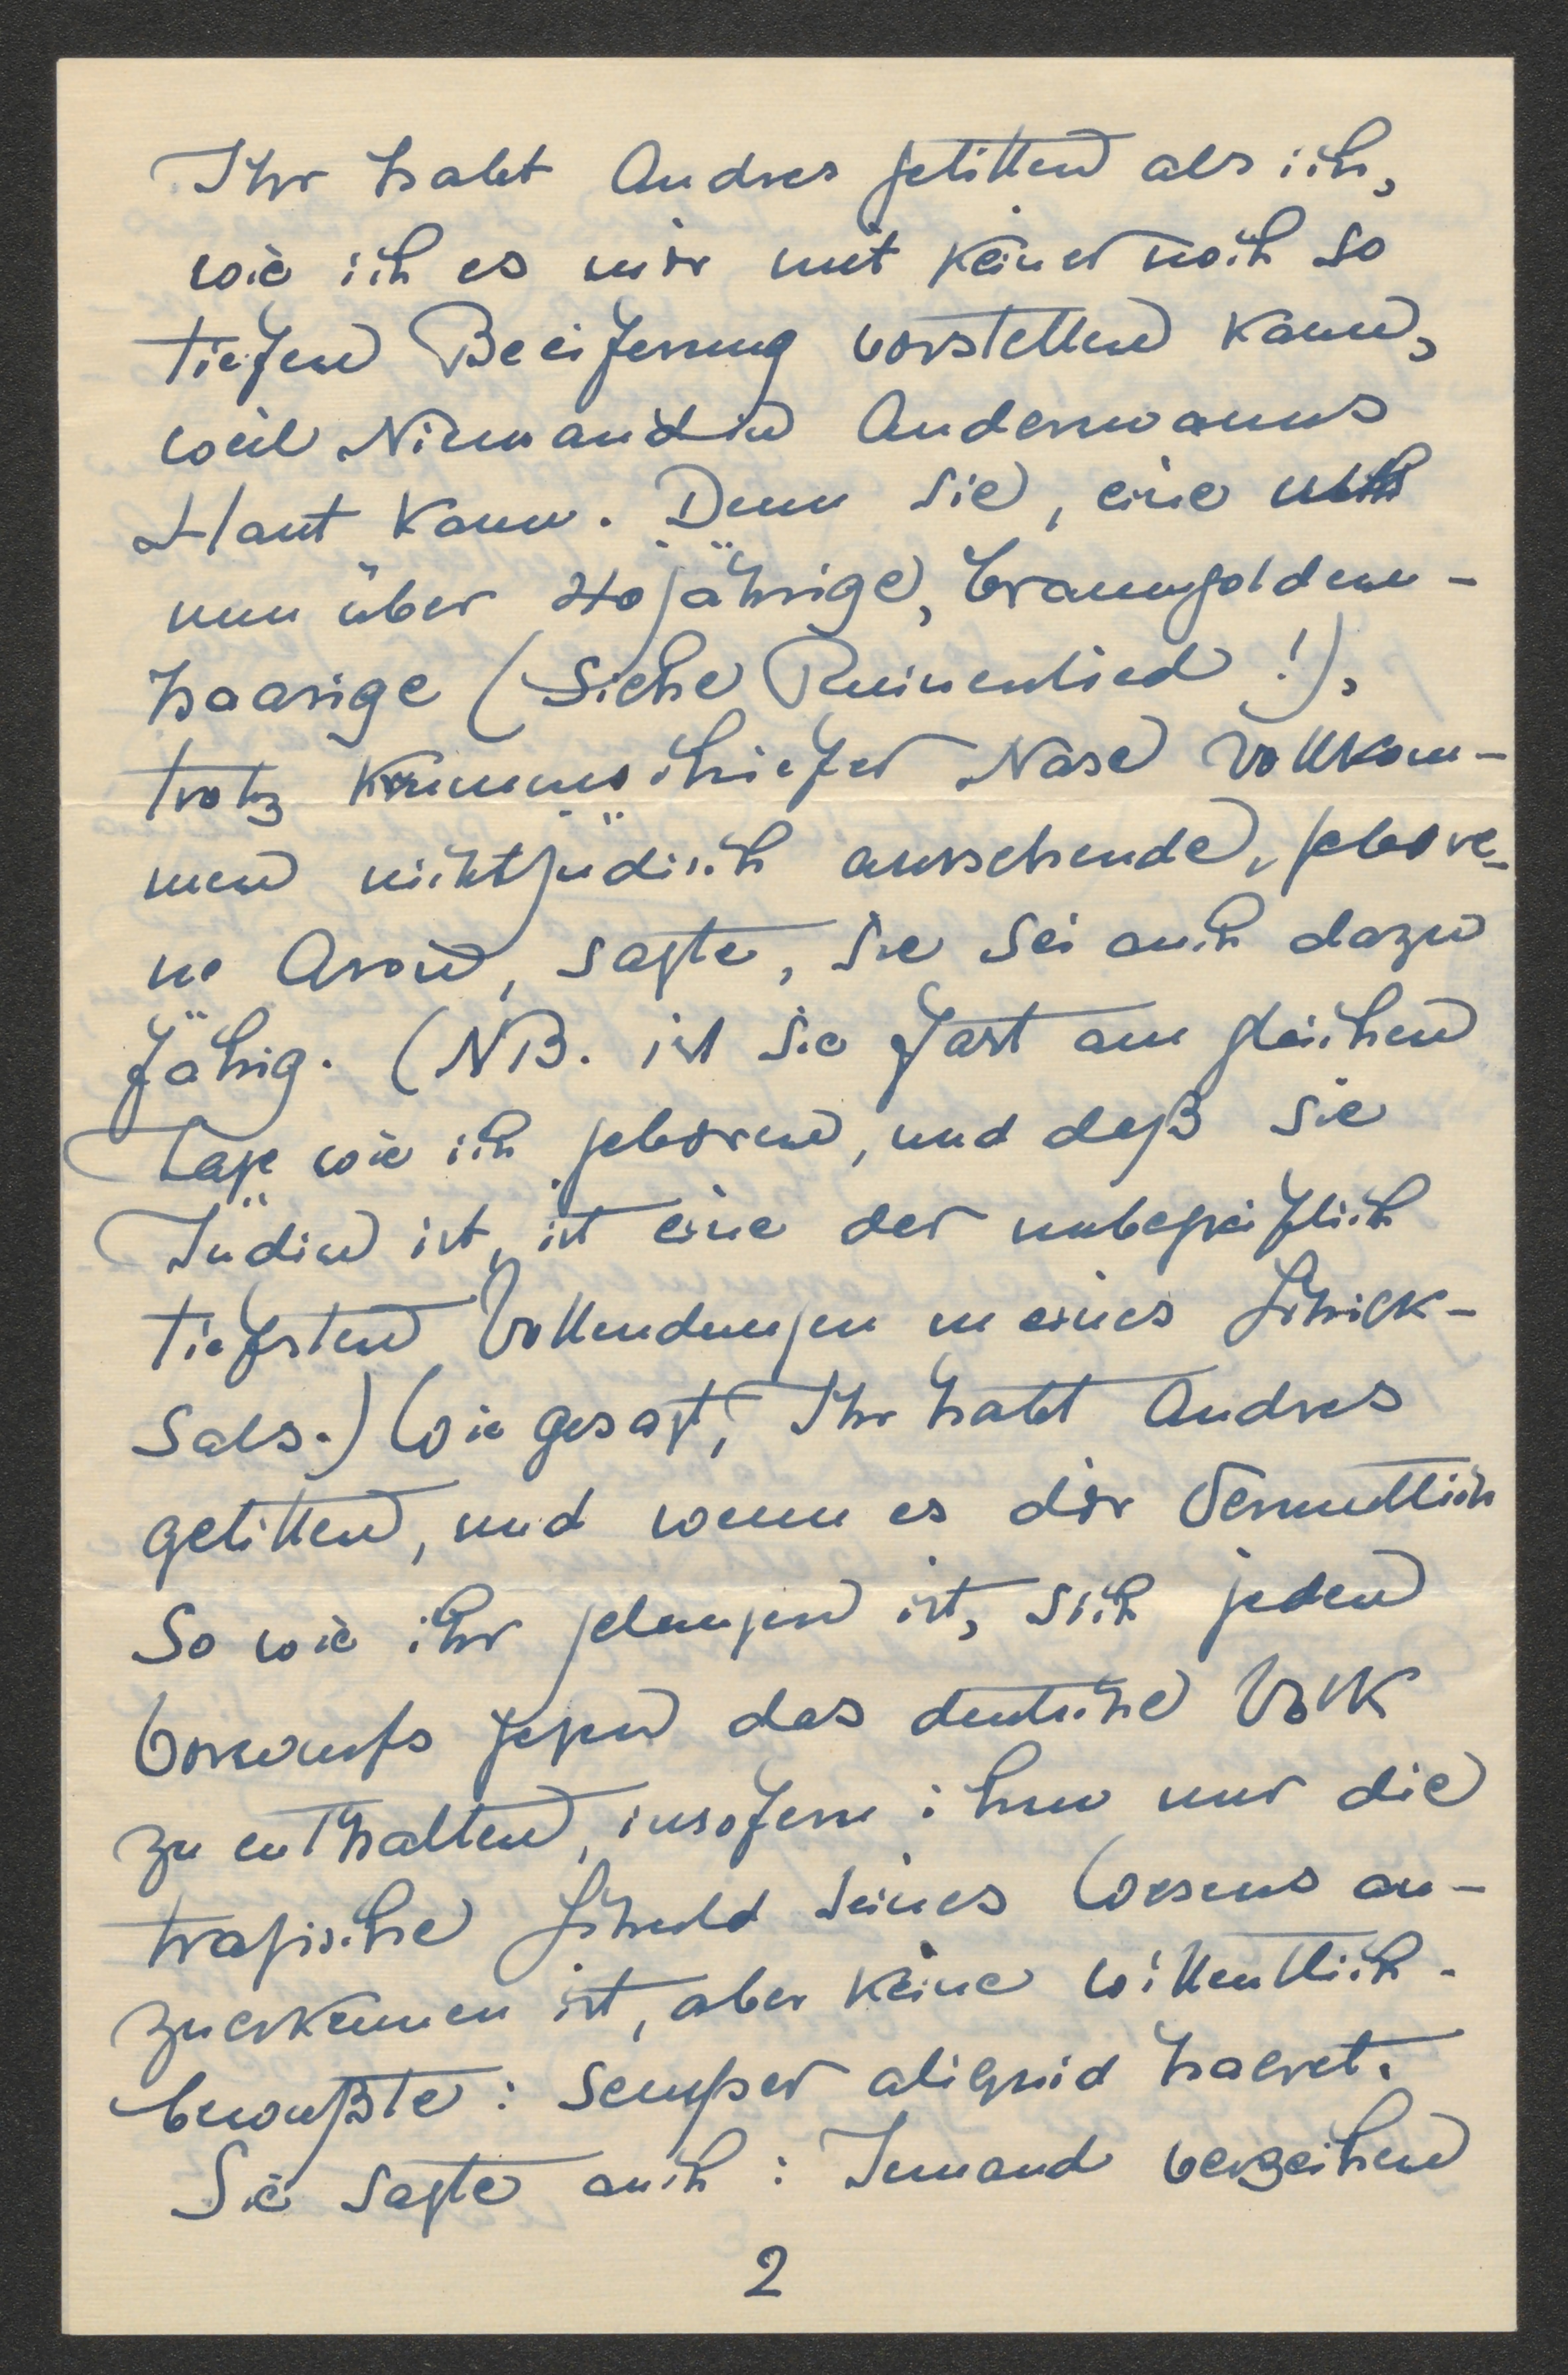 Ihr habt Andres gelitten als ich,
wie ich es mir mit keiner noch so
tiefen Beeiferung vorstellen kann,
weil Niemand in Anderwanns
Haut kann. Denn sie, eine
nun über 40jährige, braungolden-
haarige (Siehe Ruinenlied!),
trotz krummschiefer Nase vollkom-
men nichtjüdisch aussehende, gebore-
ne Aron, sagte, sie sei auch dazu
fähig. (NB. ist sie fast am gleichen
Tage wie ich geboren, und daß sie
Jüdin ist, ist eine der unbegreiflich
tiefsten Vollendungen meines Schick-
sals.) Wie gesagt, Ihr habt Andres
gelitten, und wenn es dir vermutlich
so wie ihr gelungen ist, sich jeden
Vorwurfs gegen das deutsche Volk
zu enthalten, insofern ihm nur die
tragische Schuld seines Wesens an-
zuerkennen ist, aber keine willentlich-
bewußte: semper aliquid haeret.
Sie sagte auch: Jemand verzeihen
2